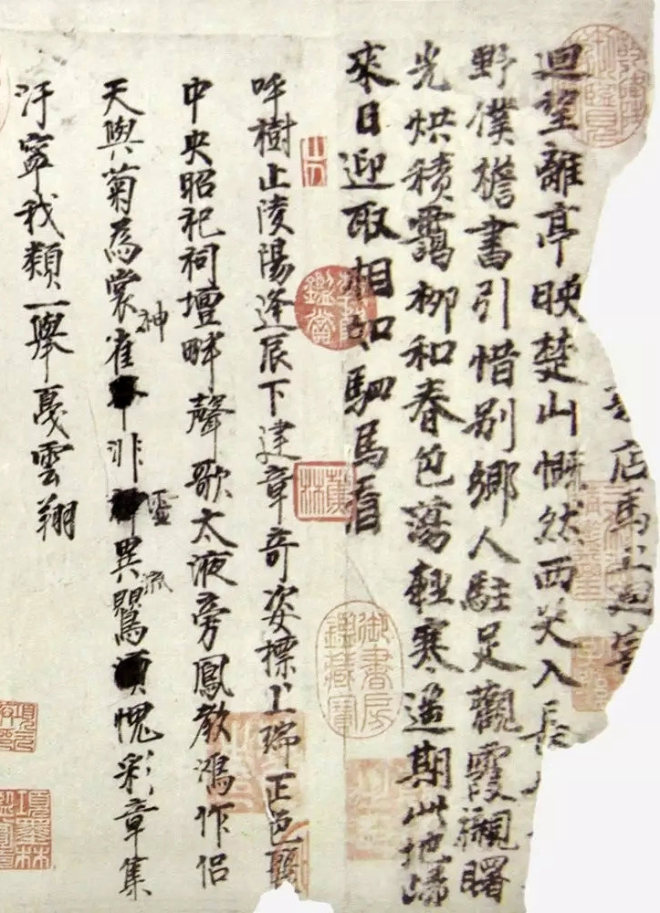 店馬上迴寄
迴望離亭映楚山慨然西笑入長
野僕擔書引惜别鄉人駐足觀霞襯曙
光烘積靄柳和春色蕩輕寒遥期此地歸
來日迎取相如駟馬看
呼樹止陵陽逢辰下建章奇姿標上瑞正色
中央昭祀祠壇畔聲歌太液旁鳳教鴻作侣
天與菊為裳雀神非靈異鸎流愧彩章集
汙寧我類一舉戛雲翔
蕉林
御書房鑑藏寶